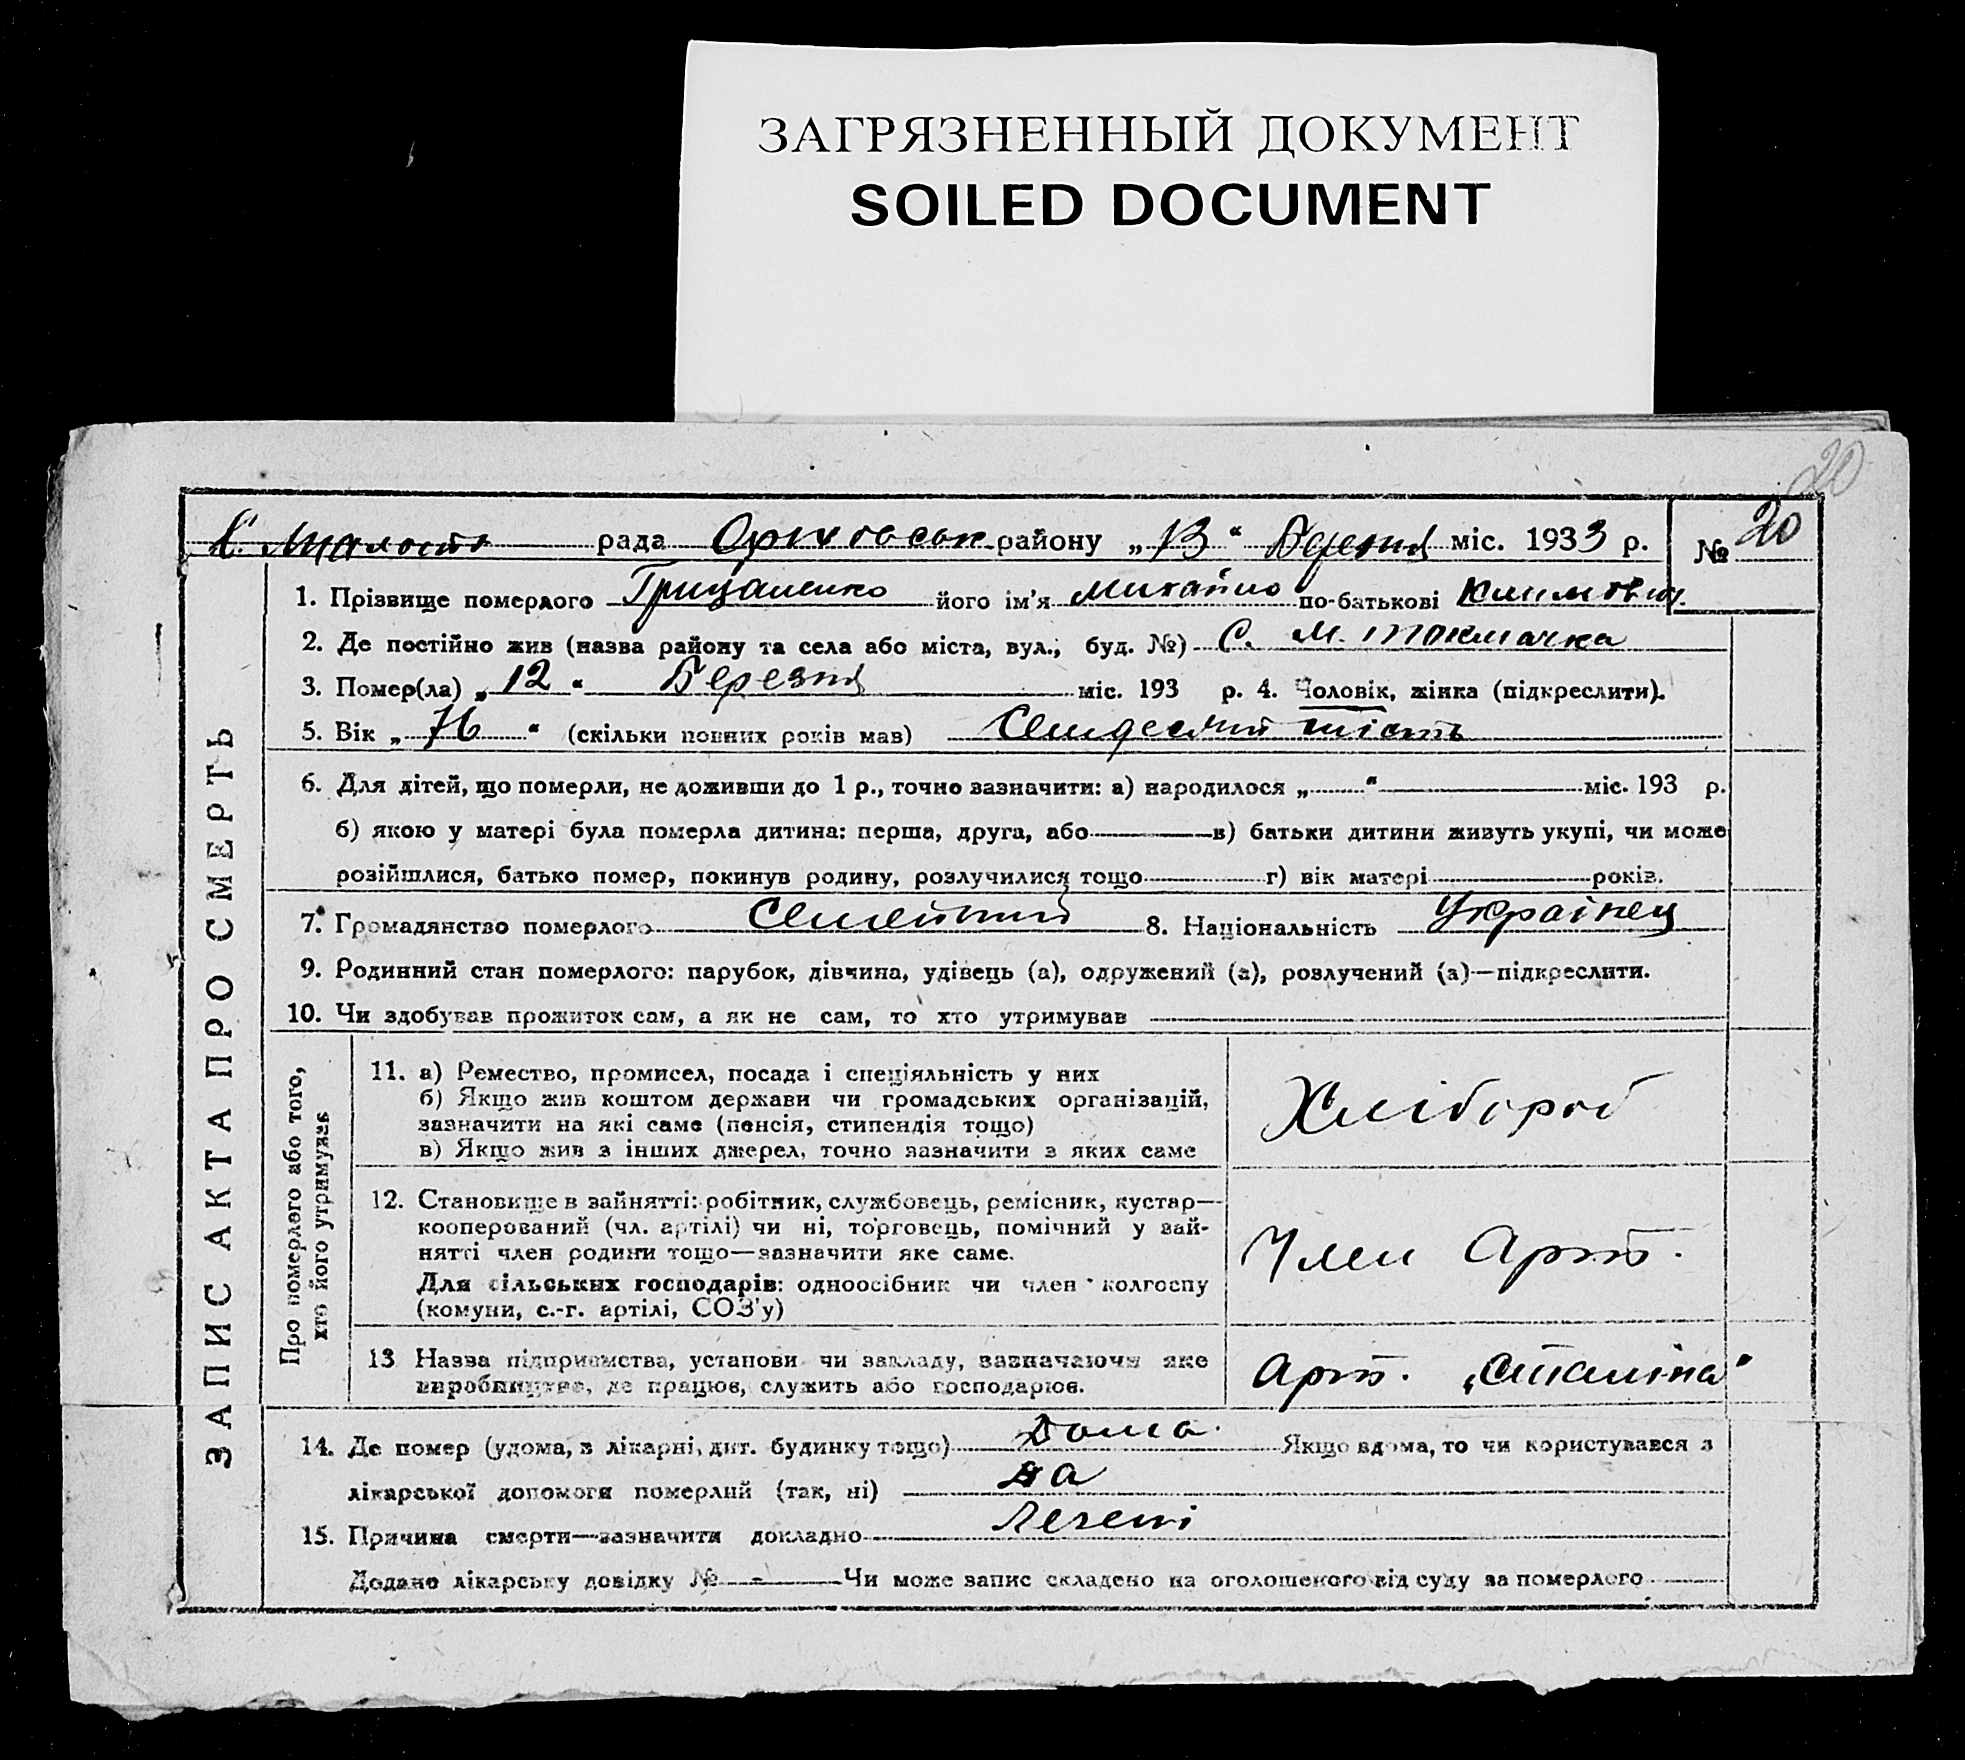 ЗАГРЯЗНЕННЫЙ ДОКУМЕНТ
SOILED DOCUMENT
20
рада Оріховськ району „13“ Березня міс. 1933 р. № 20
1. Прізвище померлого Грицаненко його ім’я Михайло по-батькові Климович
2. Де постійно жив (назва району та села або міста, вул., буд. №) С. М. Токмачка
3. Помер(ла) „12“ Березня міс. 193 р. 4. Чоловік, жінка (підкреслити).
5. Вік „76“ (скільки повних років мав) Семдесять шість
6. Для дітей, що померли, не доживши до 1 р., точно зазначити: а) народилося „ “ міс. 193 р.
б) якою у матері була померла дитина: перша, друга, або в) батьки дитини живуть укупі, чи може
розійшлися, батько помер, покинув родину, розлучилися тощо г) вік матері років.
7. Громадянство померлого 8. Національність Українец
9. Родинний стан померлого: парубок, дівчина, удівець (а), одружений (а), розлучений (а)—підкреслити.
10. Чи здобував прожиток сам, а як не сам, то хто утримував
ЗАПИС АКТА ПРО СМЕРТЬ
Про померлого або того,
хто його утримував
11. а) Ремество, промисел, посада і спеціяльність у них
б) Якщо жив коштом держави чи громадських організацій,
зазначити на які саме (пенсія, стипендія тощо)
в) Якщо жив з інших джерел, точно зазначити з яких саме
Хлібороб
12. Становище в зайнятті: робітник, службовець, ремісник, кустар—
кооперований (чл. артілі) чи ні, торговець, помічний у зай-
нятті член родини тощо—зазначити яке саме.
Для сільських господарів: одноосібник чи член колгоспу
(комуни, с.-г. артілі, СОЗ’у)
Член Арт.
13 Назва підприємства, установи чи закладу, зазначаючи яке
виробництво, де працює, служить або господарює.
Арт. „Сталіна“
14. Де помер (удома, в лікарні, дит. будинку тощо) Дома. Якщо вдома, то чи користувався з
лікарської допомоги померлий (так, ні) да
15. Причина смерти—зазначити докладно
Додано лікарську довідку № - Чи може запис складено на оголошеного від суду за померлого